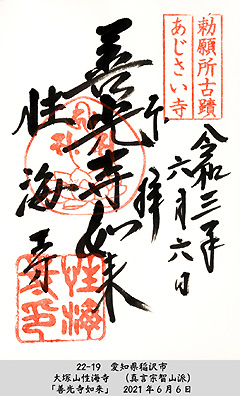 勅願所古蹟
あじさい寺
奉拝
令和三年
六月六日
善光寺如来
性海寺
22-19　愛知県稲沢市
大塚山性海寺　（真言宗智山派）
「善光寺如来」　2021年6月6日